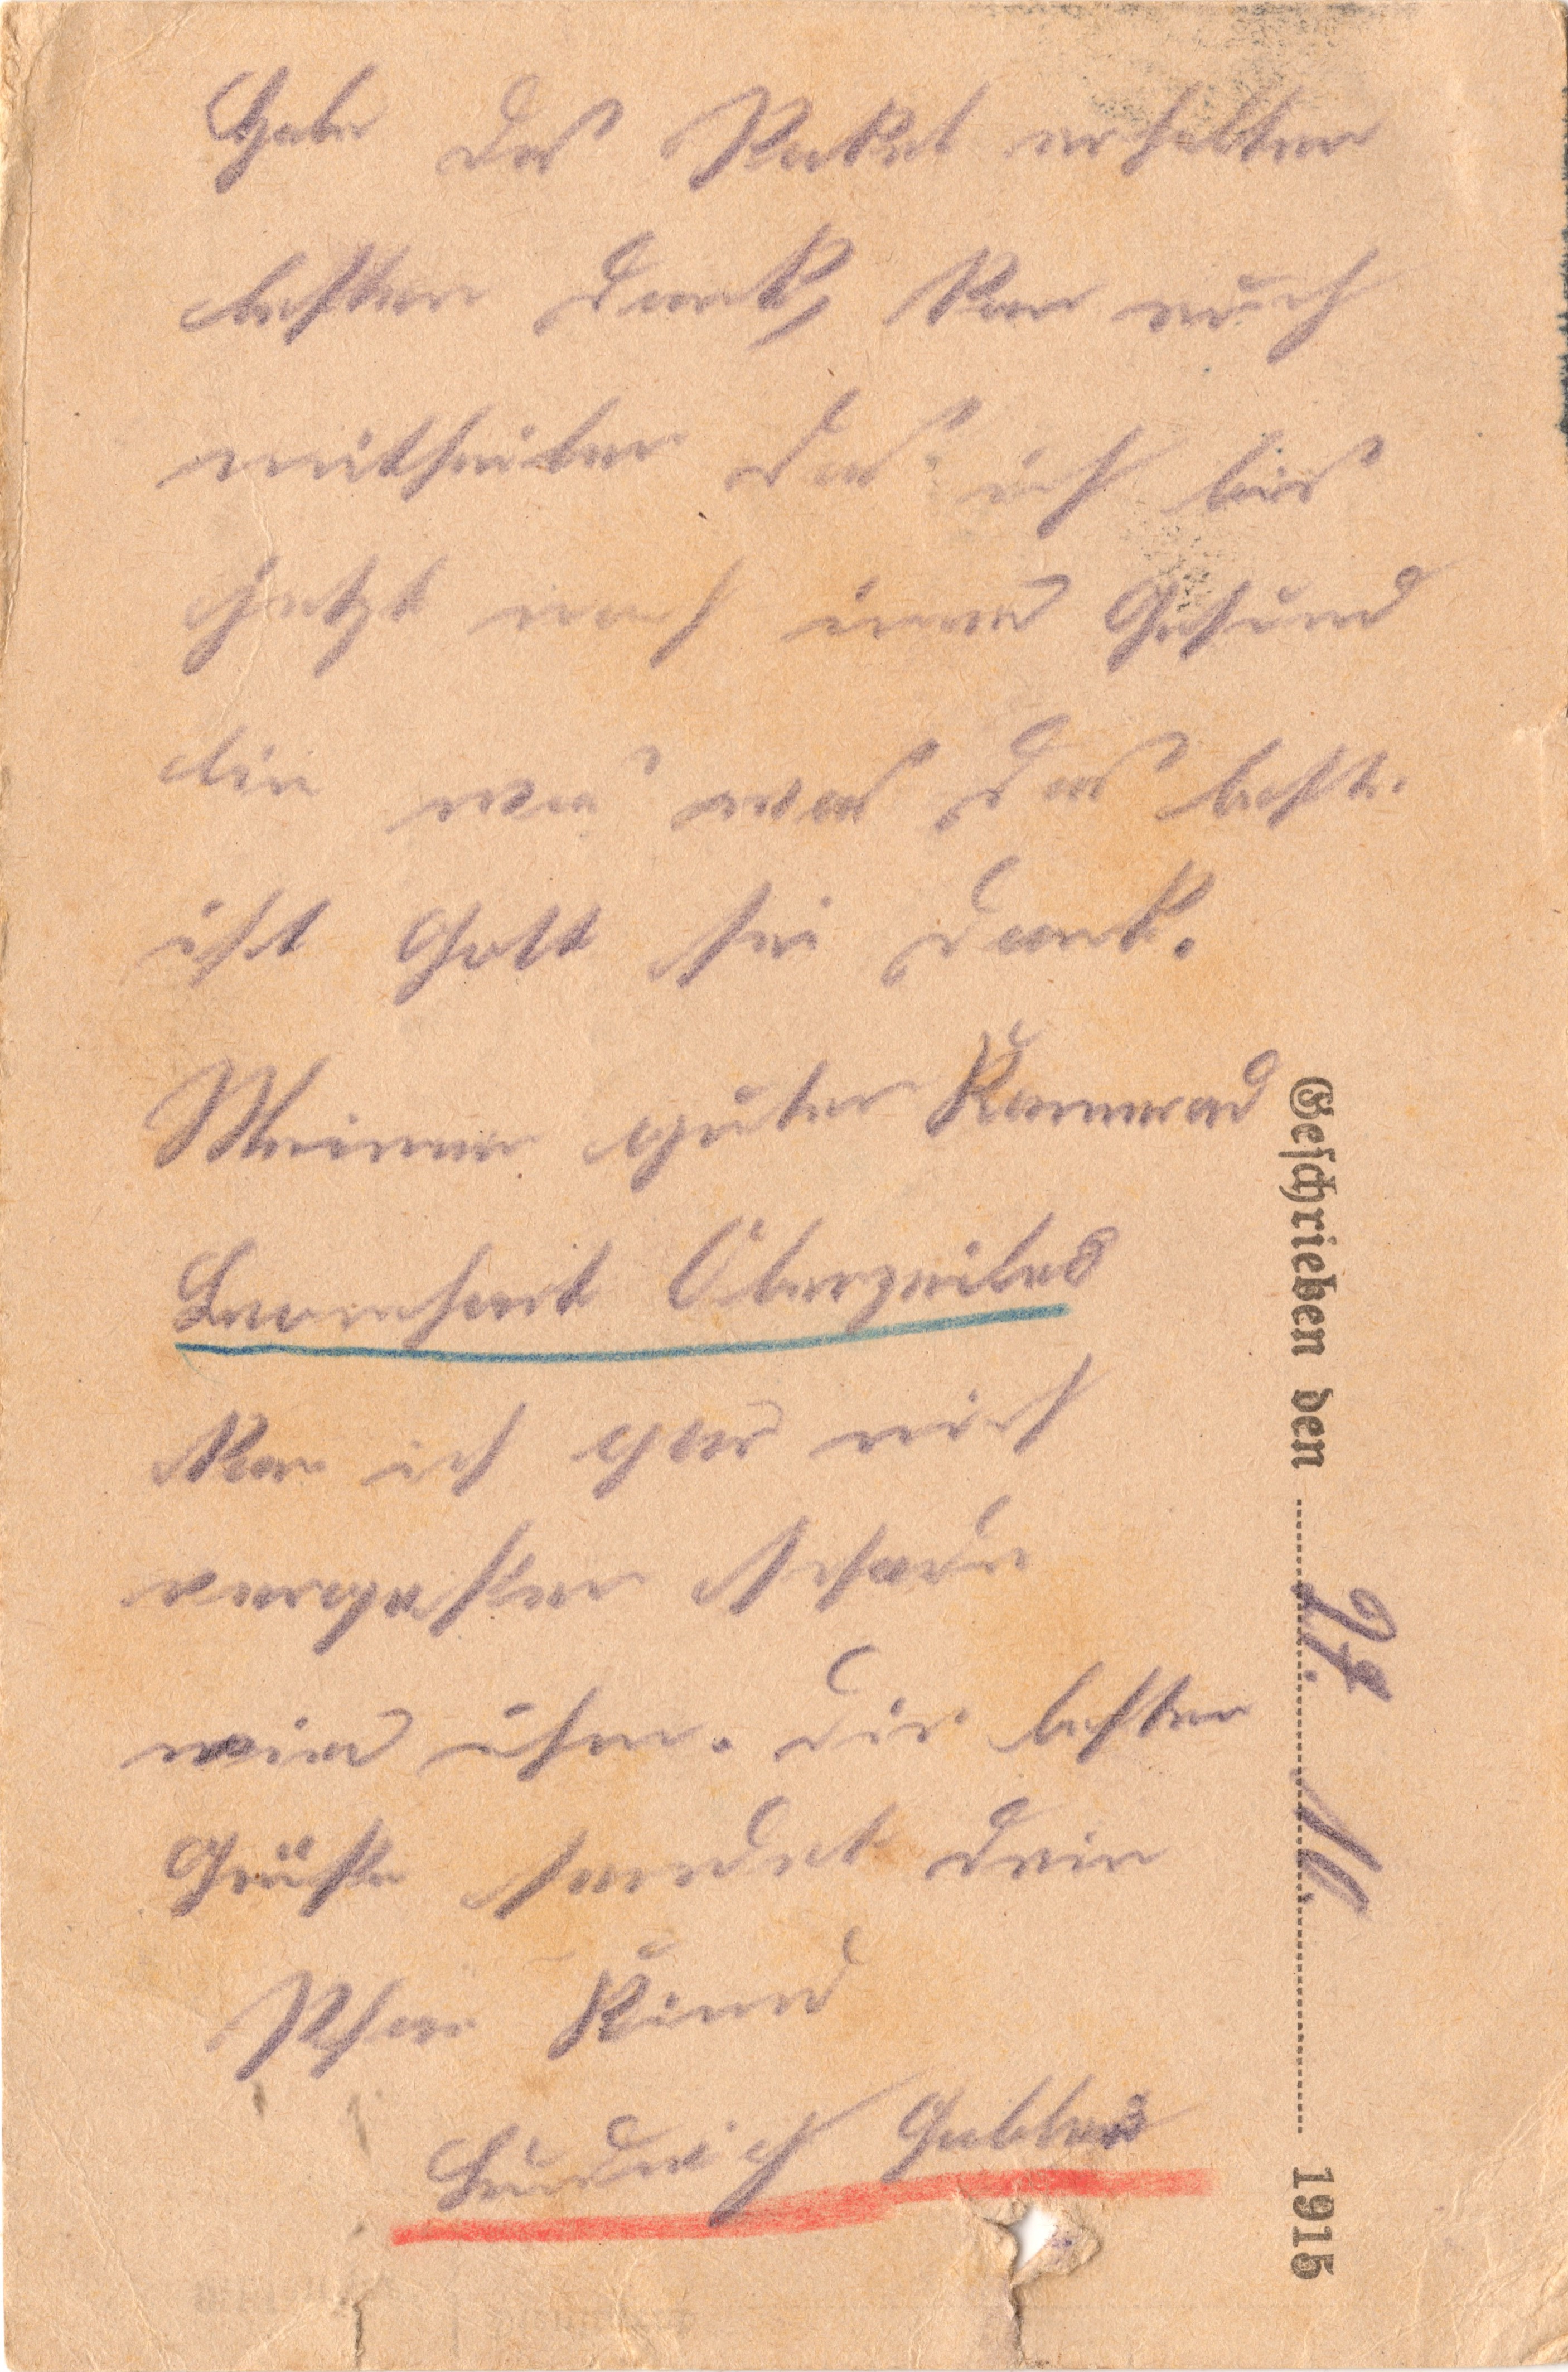 Habe das Paket erhalten
besten Dank, Kan euch
mittheilen das ich bis
jetzt noch imer Gesund
bin was das beste
ist Gott sei Dank.
Meinen guten Kammerad
Leonhart Oberzeiler
Kan ich gar nicht
vergessen schade
wird ihm. Die besten
Grüße sendet dein
Kind
Ludwich Gabler
Geschrieben den 27. 10. 1915